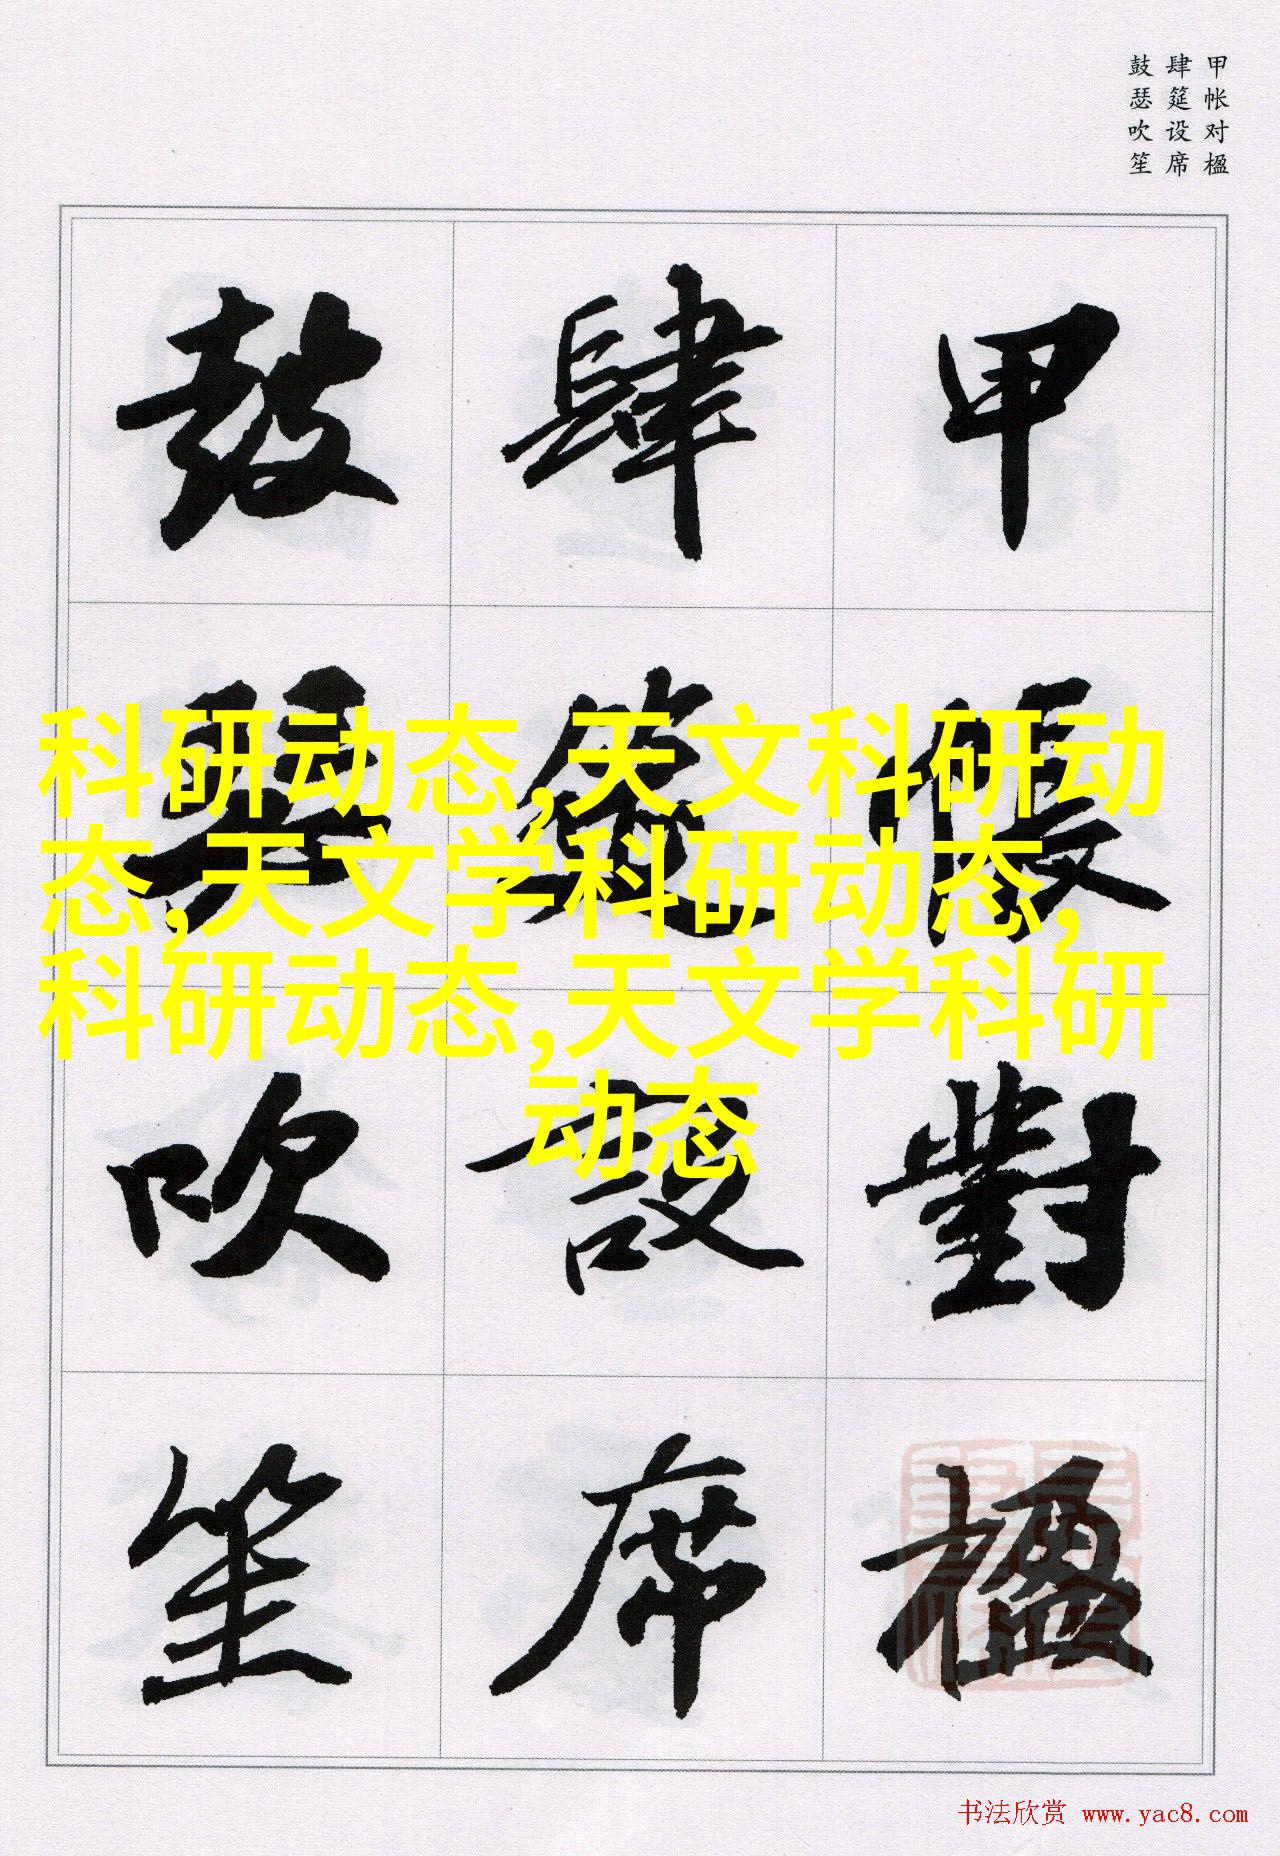 甲帐对楹
肆筵设席
鼓瑟吹笙
甲帳對楹
肆筵設席
鼓瑟吹笙
科研动态,天文科研动
态,天文学科研动态,
科研动态,天文学科研
动态
书法欣赏 www.yac8.com